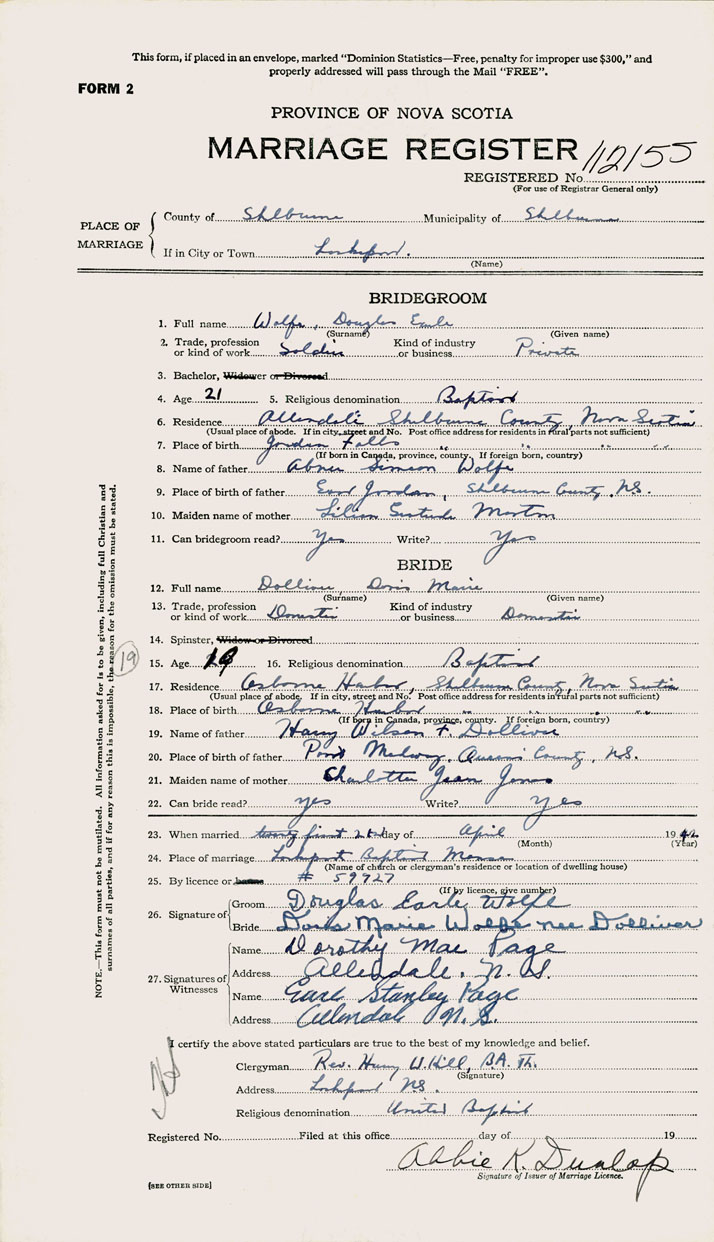 This form, if placed in an envelope, marked "Dominion Statistics—Free, penalty for improper use $300," and
properly addressed will pass through the Mail "FREE".
FORM 2
PROVINCE OF NOVA SCOTIA
MARRIAGE REGISTER
112155
REGISTERED No.
(For use of Registrar General only)
PLACE OF MARRIAGE
County of Shelburne Municipality of Shelburne
If in City or Town Lockeport.
(Name)
BRIDEGROOM
1. Full name Wolfe, Douglas Earle
(Surname) (Given name)
2. Trade, profession or kind of work Soldier Kind of industry or business Private
3. Bachelor, Widower or Divorced
4. Age 21 5. Religious denomination Baptist
6. Residence Allendale Shelburne County, Nova Scotia
(Usual place of abode. If in city, street and No. Post office address for residents in rural parts not sufficient)
7. Place of birth Jordan Falls " " " "
(If born in Canada, province, county. If foreign born, country)
8. Name of father Abner Simeon Wolfe
9. Place of birth of father East Jordan, Shelburne County, N.S.
10. Maiden name of mother Lilian Gertrude Morton
11. Can bridegroom read? Yes Write? Yes
BRIDE
12. Full name Dolliver, Doris Marie
(Surname) (Given name)
13. Trade, profession or kind of work Domestic Kind of industry or business Domestic
14. Spinster, Widow or Divorced
15. Age 19 16. Religious denomination Baptist
19
17. Residence Osborne Harbor, Shelburne County, Nova Scotia
(Usual place of abode. If in city, street and No. Post office address for residents in rural parts not sufficient)
18. Place of birth Osborne Harbor " " " "
(If born in Canada, province, county. If foreign born, country)
19. Name of father Harry Wilson F. Dolliver
20. Place of birth of father Port Medway, Queens County, N.S.
21. Maiden name of mother Charlotte Jean Jones
22. Can bride read? yes Write? Yes
23. When married twenty first 21st day of April 1942
(Month) (Year)
24. Place of marriage Lockeport Baptist Manse
(Name of church or clergyman's residence or location of dwelling house)
25. By licence or banns # 59927
(If by licence, give number)
26. Signature of
Groom Douglas Earle Wolfe
Bride Doris Marie Wolfe nee Dolliver
27. Signatures of Witnesses
Name Dorothy Mae Page
Address Allendale, N.S.
Name Earl Stanley Page
Address Allendale N.S.
I certify the above stated particulars are true to the best of my knowledge and belief.
Clergyman Rev. Harry W. Hill, B.A. Th.
(Signature)
Address Lockeport N.S.
Religious denomination United Baptist
Registered No. Filed at this office day of 19
Abbie K. Dunlop
Signature of Issuer of Marriage Licence.
[SEE OTHER SIDE]
NOTE.—This form must not be mutilated. All information asked for is to be given, including full Christian and
surnames of all parties, and if for any reason this is impossible, the reason for the omission must be stated.